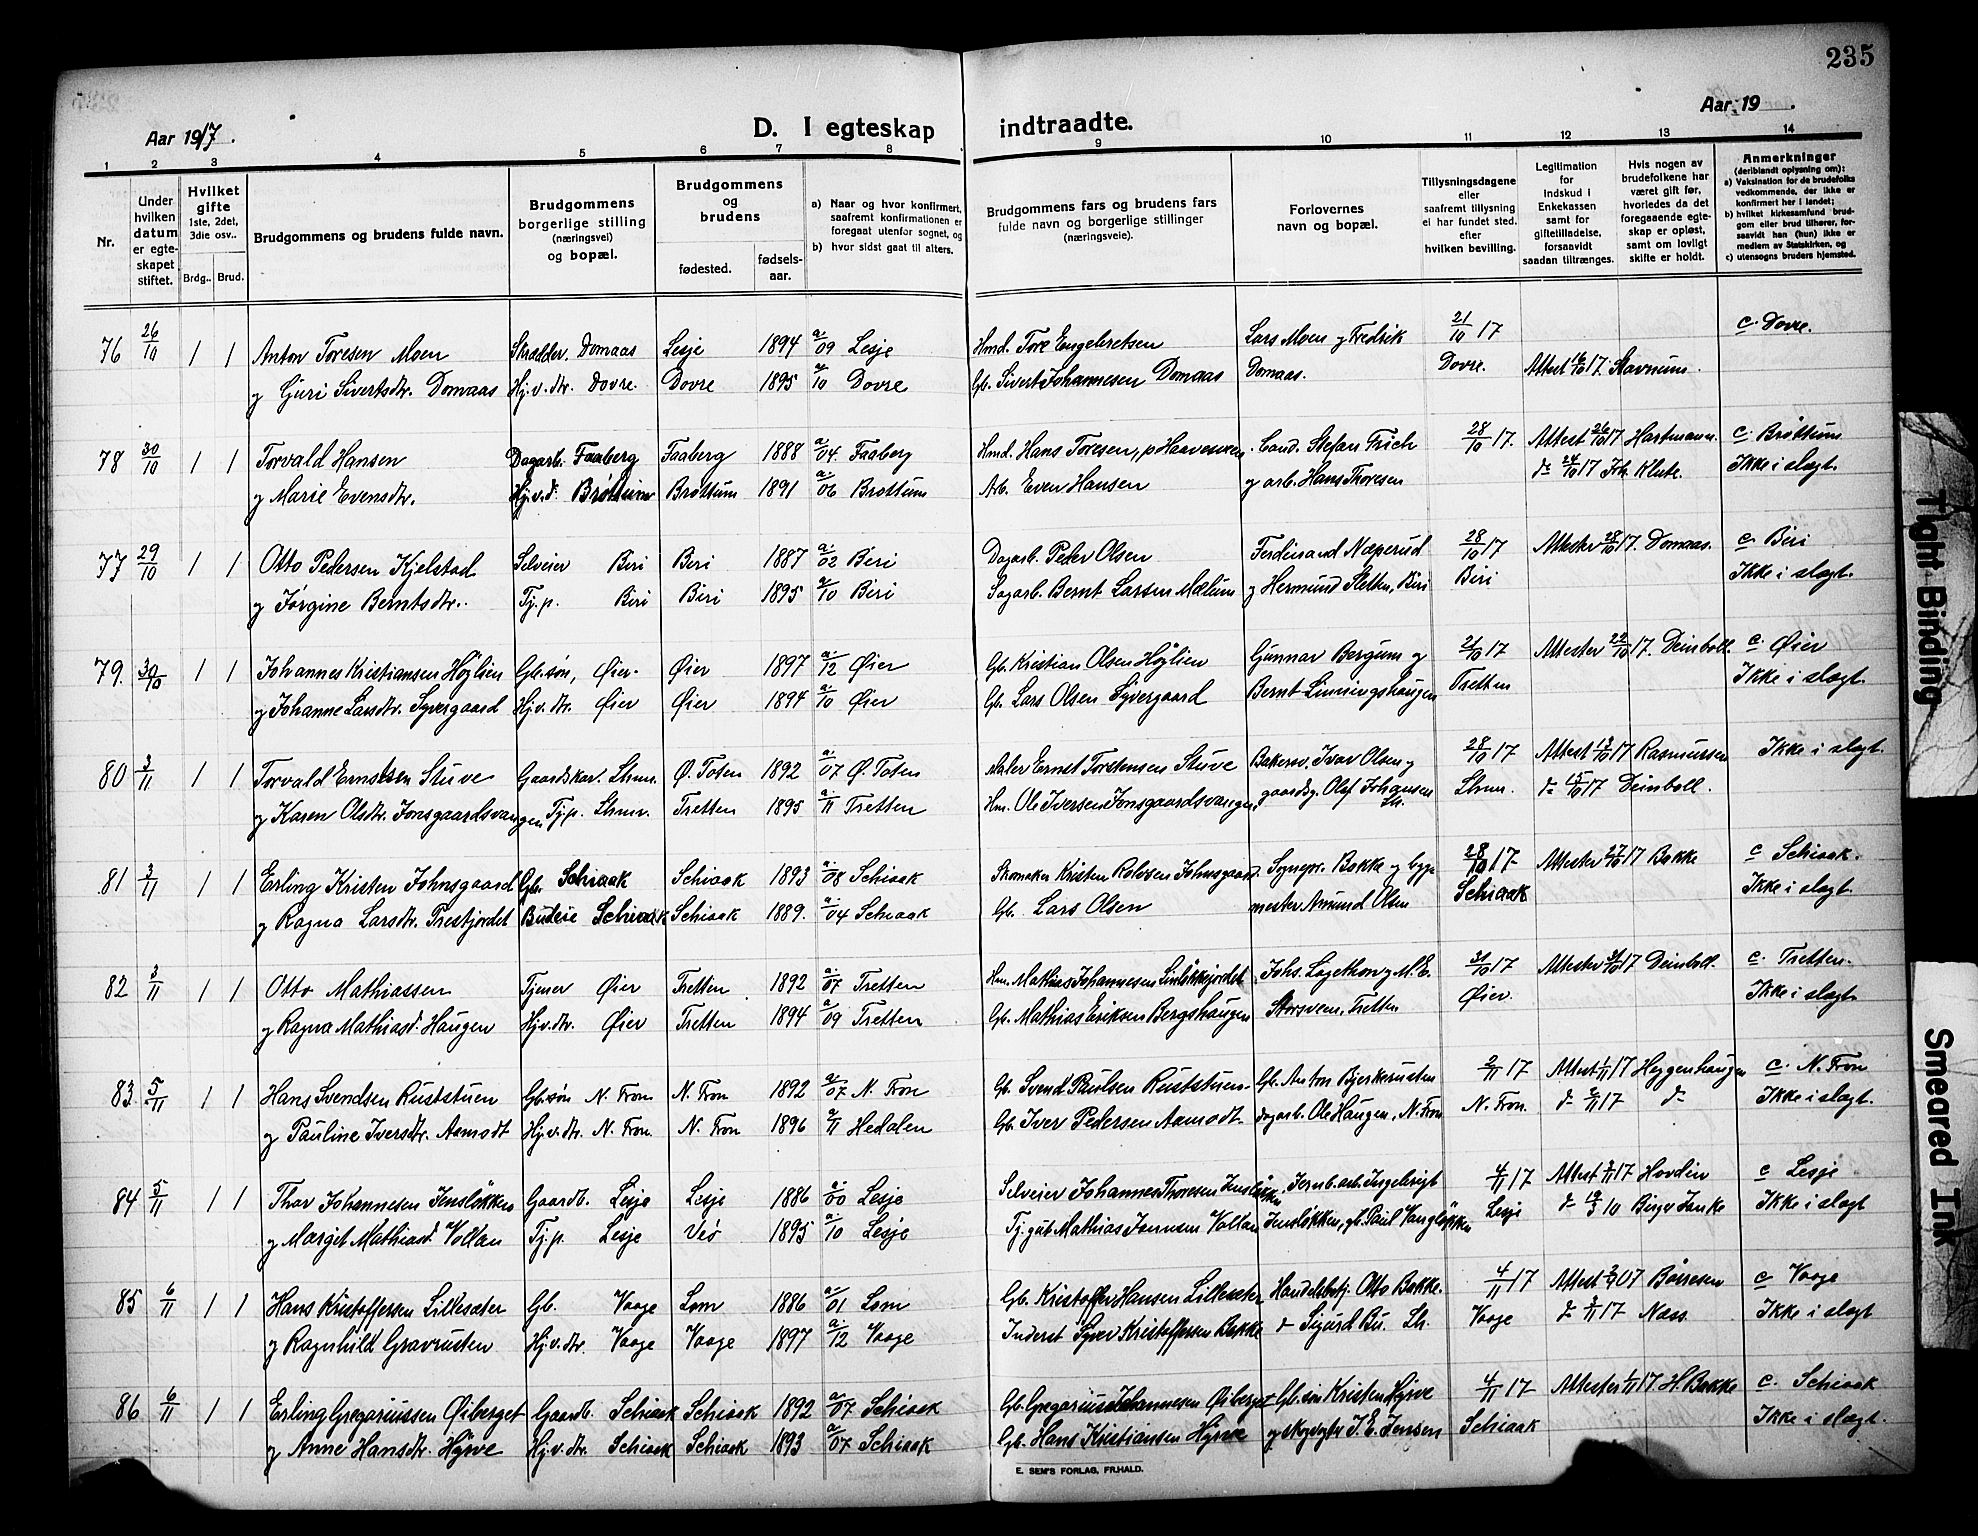 235
Aar 1917.
D. I egteskap indtraadte.
Aar 19 .
1 2 3 4 5 6 7 8 9 10 11 12 13 14
Nr.
Under hvilken datum er egteskapet stiftet.
Hvilket gifte 1ste, 2det, 3die osv..
Brdg.. Brud.
Brudgommens og brudens fulde navn.
Brudgommens borgerlige stilling (næringsvei) og bopæl.
Brudgommens og brudens
fødested. fødselsaar.
a) Naar og hvor konfirmert, saafremt konfirmationen er foregaat utenfor sognet, og
b) hvor sidst gaat til alters.
Brudgommens fars og brudens fars fulde navn og borgerlige stillinger (næringsveie).
Forlovernes navn og bopæl.
Tillysningsdagene eller saafremt tillysning ei har fundet sted, efter hvilken bevilling.
Legitimation for Indskud i Enkekassen samt for giftetilladelse, forsaavidt saadan tiltrænges.
Hvis nogen av brudefolkene har været gift før, hvorledes da det foregaaende egteskap er opløst, samt om lovligt skifte er holdt.
Anmerkninger (deriblandt oplysning om):
a) Vaksination for de brudefolks vedkommende, der ikke er konfirmert her i landet;
b) hvilket kirkesamfund brudgom eller brud tilhører, forsaavidt han (hun) ikke er medlem av Statskirken, og
c) utensogns bruders hjemsted.
76 26/10 1 1 Anton Toresen Moen Skrædder. Domaas Lesje 1894 a. 09 Lesje Hmd. Tore Engebretsen Lars Moen og Fredrik 21/10 17 c. Dovre.
og Guri Sivertsdtr. Domaas Hj.v.dtr. Dovre. Dovre 1895 a/10 Dovre Gb. Sivert Johannesen Domaas Domaas. Dovre. Attest 16/10 17. Stavnum.
78 30/10 1 1 Torvald Hansen Dagarb. Faaberg Faaberg 1888 a. 04. Faaberg Hmd. Hans Toresen, p Haavesveen Cand. Stefan Frich 28/10 17. Attest 26/10 17 Hartmann. c. Brøttum
og Marie Evensdtr. Hj.v.d. Brøttum Brøttum 1891 a. 06 Brøttum Arb. Even Hansen og arb. Hans Thoresen do 24/10 17 Joh. Klute. Ikke i slegt.
77 29/10 1 1 Otto Pedersen Kjelstad Selveier Biri Biri 1887 a. 02 Biri Dagarb. Peder Olsen Ferdinand Næperud 28/10 17 Attester 28/10 17. Domaas. c. Biri
og Jørgine Berntsdtr. Tj.p. Biri Biri 1895 a/10 Biri Dagarb. Bernt Larsen Mælum og Hermund Sletten, Biri Biri Ikke i slegt.
79. 30/10 1 1 Johannes Kristiansen Høylien Gb.søn, Øier. Øier 1897 a. 12 Øier Gb. Kristian Olsen Høylien Gunnar Bergum og 21/10 17 Attester 22/10 17. Deinboll. c. Øier
og Johanne Larsdtr. Syvergaard Hj.v.dtr. Øier Øier 1894 a. 10 Øier Gb. Lars Olsen Syvergaard Bernt Linningshaugen Tretten Ikke i slegt.
80 3/11 1 1 Torvald Ernstsen Stuve Gaardskar. Lhmr. Ø. Toten 1892 a. 07 Ø. Toten Maler Ernst Torstensen Stuve Bakersv. Ivar Olsen og 28/10 17 Attest 13/10 17 Rasmussen Ikke i slegt.
og Karen Olsdtr. Jonsgaardsvangen Tj.p. Lhmr. Tretten 1895 a. 11 Tretten Hm. Ole Iversen Jonsgaardsvangen gaardsg. Olof Johansen Lh. Lhmr. do 15/10 17 Deinboll.
81 3/11 1 1 Erling Kristen Johnsgaard Gb. Schiaak Schiaak 1893 a. 08 Schiaak Skomaker Kristen Rolvsen Johnsgaard Sognepr. Bakke og byg- 28/10 17. Attester 27/10 17 Bakke c Schiaak.
og Ragna Larsdtr. Trestjordet Budeie Schiaak Schiaak 1889. a. 04 Schiaak Gb. Lars Olsen mester Amund Olsen Schiaak Ikke i slegt.
82 3/11 1 1 Otto Mathiassen Tjener Øier Tretten 1892 a. 07 Tretten Hm. Mathias Johannesen Linløkkjordet Johs. Lagethon og M. E. 31/10 17 Attester 31/10 17 Deinboll. c. Tretten.
og Ragna Mathiasd. Haugen Hj.v.dtr. Øier Tretten 1894 a. 09 Tretten Gb. Mathias Eriksen Bergshaugen Storsveen, Tretten Øier. Ikke i slegt.
83. 5/11 1 1 Hans Svendsen Ruststuen Gb.søn N. Fron. N. Fron 1892 a/07 N. Fron Gb. Svend Paulsen Ruststuen. Gb. Anton Bjerkerusten 2/11 17 Attest 1/11 17 Heggenhaugen c. N. Fron
og Pauline Iversdtr. Aamodt Hj.v.dtr. N. Fron. N. Fron 1896 a/11 Hedalen Gb. Iver Pedersen Aamodt. dagarb. Ole Haugen, N. Fron N. Fron. do 2/11 17 do Ikke i slegt.
84 5/11 1 1 Thor Johannesen Jensløkken Gaardb. Lesje Lesje 1886 a. 00 Lesje Selveier Johannes Thoresen Jensløkken Jernb.arb. Ingebrigt 4/11 17 Attest 3/11 17 Hovdin c Lesje
og Marget Mathiasd. Vollan Tj.p. Lesje Veø 1895 a. 10 Lesje Tj.gut Mathias Jørnsen Vollan Jensløkken, gb. Paul Vangløkken Lesje do 19/3 10 Birger Janke Ikke i slegt
85 6/11 1 1 Hans Kristoffersen Lillesæter Gb. Vaage Lom 1886 a. 01 Lom Gb. Kristoffer Hansen Lillesæter Handelsbetj. Otto Bakke. 4/11 17 Attest 07 Børresen c Vaage
og Ragnhild Gravrusten Hj.v.dtr. Vaage Vaage 1897 a. 12 Vaage Inderst Syver Kristoffersen Bakke do Sigurd Bu. Lh. Vaage do 17 Næss. Ikke i slegt
86 6/11 1 1 Erling Gregoriussen Øiberget Gaardb. Schiaak Schiaak 1892 a. 07 Schiaak Gb. Gregorius Johannesen Øiberget Gb.søn Kristen Hyrve 4/11 17. Attester 1/11 17 H. Bakke c. Schiaak
og Anne Hansdtr. Hyrve Hj.v.dtr. Schiaak Schiaak 1893 a. 07 Schiaak Gb. Hans Kristiansen Hyrve og skogvogter J. E. Jensen Schiaak Ikke i slegt.
E. SEM'S FORLAG, FR.HALD.
Tight Binding
Smeared Ink